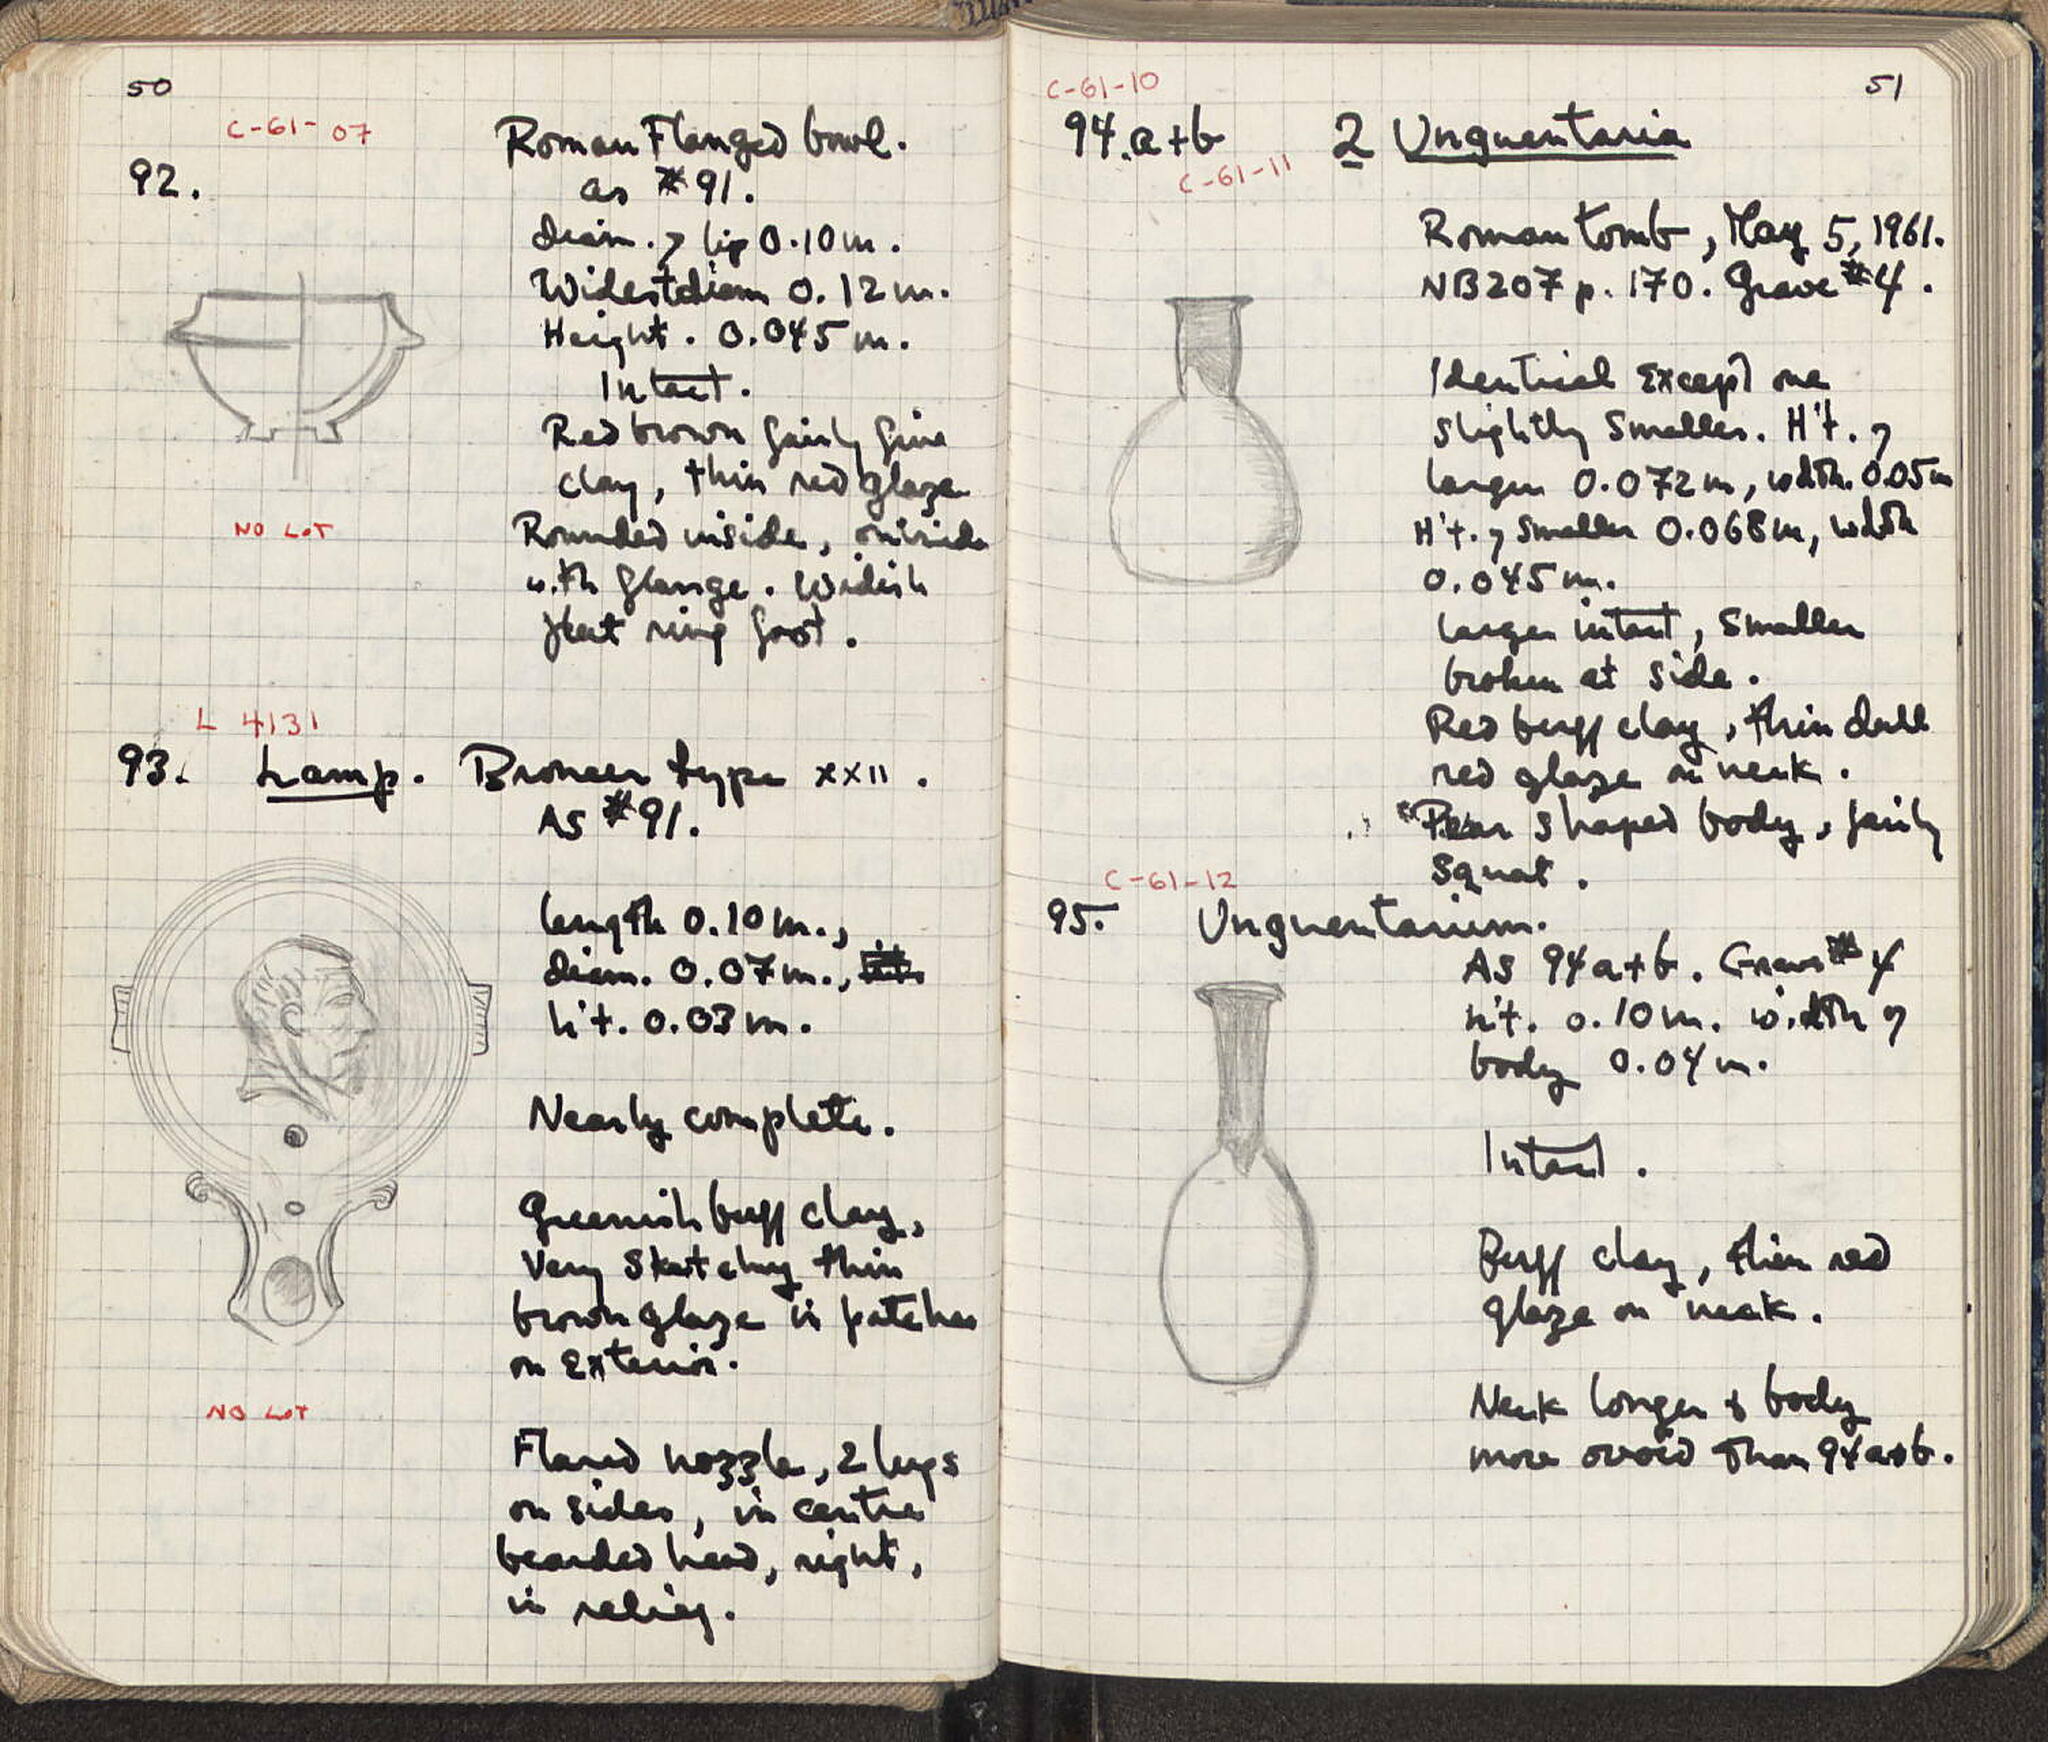 50
C-61-07
92.
Roman Flanged bowl.
as #91.
diam. of lip 0.10 m.
Widest diam 0.12 m.
Height. 0.045 m.
Intact.
Red brown fairly fine
clay, thin red glaze
Rounded inside, outside
with flange. Widish
flat ring foot.
NO LOT
L 4131
93. Lamp. Broneer type XXII.
As #91.
length 0.10 m.,
diam. 0.07 m.,
h't. 0.03 m.
Nearly complete.
Greenish buff clay,
Very sketchy thin
brown glaze in patches
on exterior.
NO LOT
Flared nozzle, 2 lugs
on sides, in centre
bearded head, right,
in relief.
51
C-61-10
94. a+b 2 Unguentaria
C-61-11
Roman tomb, May 5, 1961.
NB207 p. 170. Grave #4.
Identical except one
slightly smaller. H't. of
larger 0.072 m, width 0.05 m
H't. of smaller 0.068 m, width
0.045 m.
larger intact, smaller
broken at side.
Red buff clay, thin dull
red glaze on neck.
Pear shaped body, fairly
squat.
C-61-12
95. Unguentarium.
As 94 a+b. Grave #4
h't. 0.10 m. width of
body 0.04 m.
Intact.
Buff clay, thin red
glaze on neck.
Neck longer & body
more ovoid than 94 a+b.